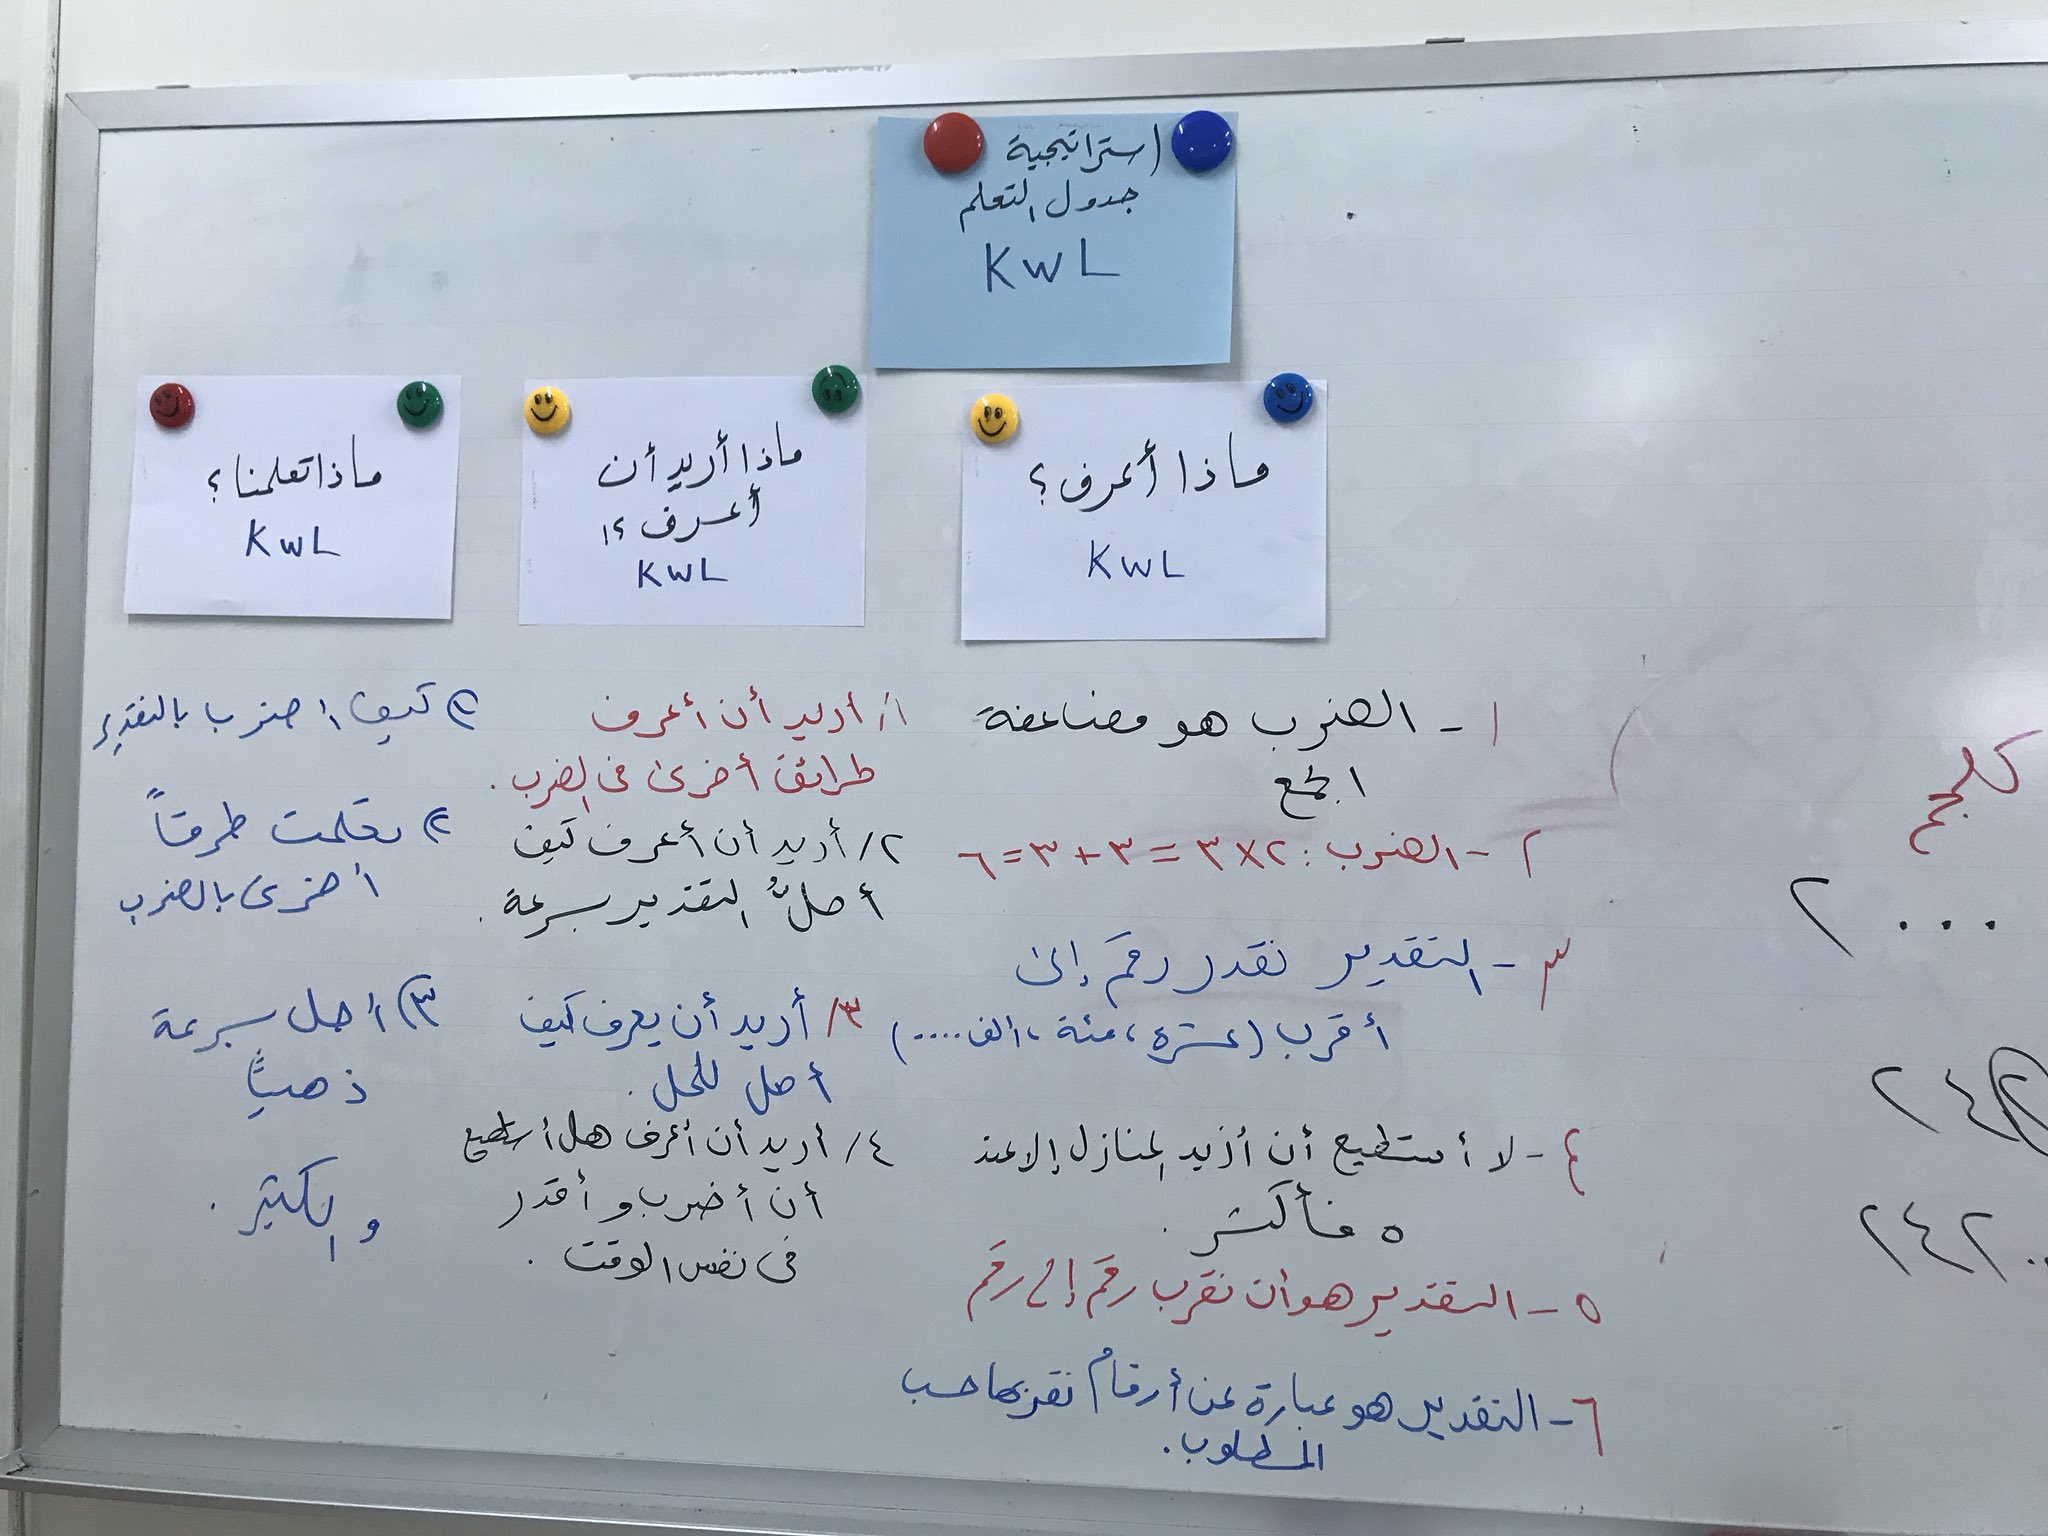 استراتيجية
جدول التعلم
KWL
ماذا أعرف؟
KWL
ماذا أريد أن
أعرف؟!
KWL
ماذا تعلمنا؟
KWL
١- الضرب هو مضاعفة
الجمع
٢- الضرب: ٢×٣ = ٣+٣ = ٦
٣- التقدير نقدر رقم إلى
أقرب (عشرة، مئة، ألف....)
٤- لا أستطيع أن أزيد المنازل إلا عند
٥ فأكثر.
٥- التقدير هو أن نقرب رقم إلى رقم
٦- التقدير هو عبارة عن أرقام نقربها حسب
المطلوب.
١/ أريد أن أعرف
طرائق أخرى في الضرب.
٢/ أريد أن أعرف كيف
أحلُّ التقدير بسرعة.
٣/ أريد أن يعرف كيف
أصل للحل.
٤/ أريد أن أعرف هل أستطيع
أن أضرب و أقدر
في نفس الوقت.
كيف اضرب بالتقدير
٢) تعلمت طرقاً
أخرى بالضرب
٣) أحل بسرعة
ذهنيًّا
و الكثير.
٢...
٢٤٢
٢٤٢..